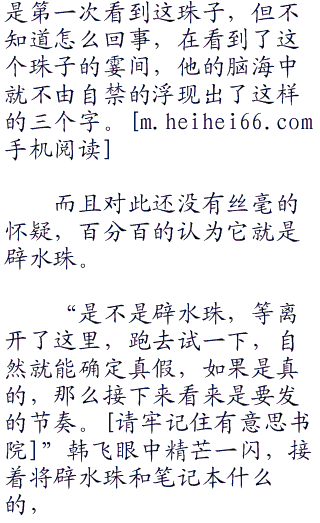 是第一次看到这珠子，但不
知道怎么回事，在看到了这
个珠子的霎间，他的脑海中
就不由自禁的浮现出了这样
的三个字。[m.heihei66.com
手机阅读]
而且对此还没有丝毫的
怀疑，百分百的认为它就是
辟水珠。
“是不是辟水珠，等离
开了这里，跑去试一下，自
然就能确定真假，如果是真
的，那么接下来看来是要发
的节奏。[请牢记住有意思书
院]”韩飞眼中精芒一闪，接
着将辟水珠和笔记本什么
的，